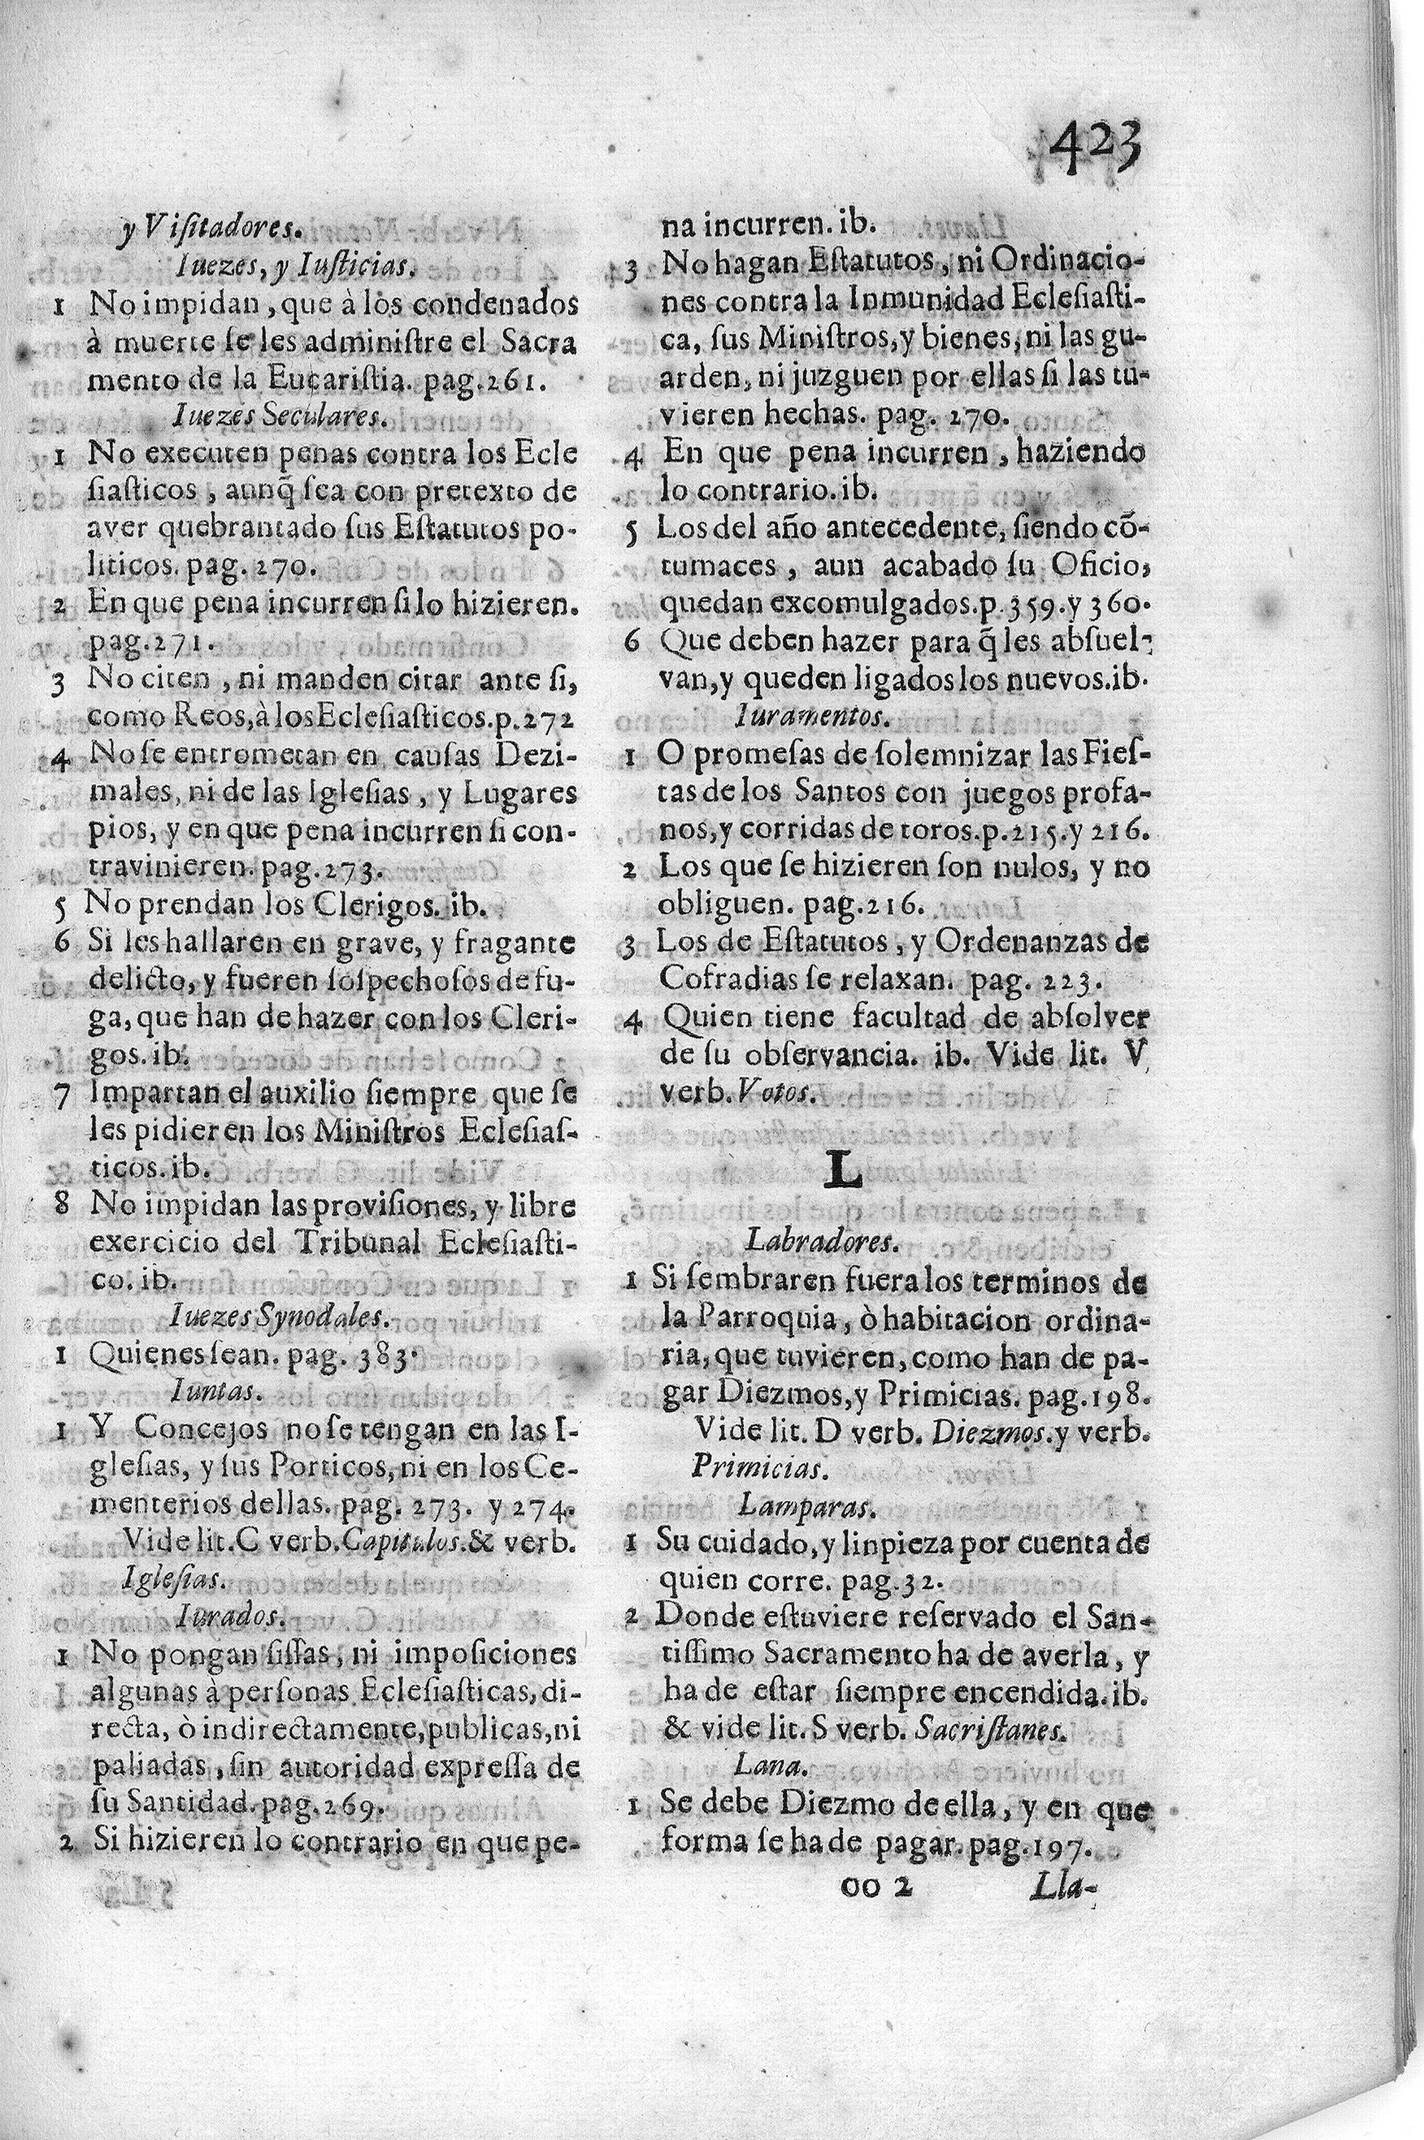 423
y Viſitadores.
Iuezes, y Iuſticias.
1 No impidan, que à los condenados
à muerte ſe les adminiſtre el Sacra
mento de la Eucariſtia. pag. 261.
Iuezes Seculares.
1 No executen penas contra los Ecle
ſiaſticos, aunq̃ ſea con pretexto de
aver quebrantado ſus Eſtatutos po-
liticos. pag. 270.
2 En que pena incurren ſi lo hizieren.
pag. 271.
3 No citen, ni manden citar ante ſi,
como Reos, à los Ecleſiaſticos. p. 272
4 No ſe entrometan en cauſas Dezi-
males, ni de las Igleſias, y Lugares
pios, y en que pena incurren ſi con-
travinieren. pag. 273.
5 No prendan los Clerigos. ib.
6 Si les hallaren en grave, y fragante
delicto, y fueren ſoſpechoſos de fu-
ga, que han de hazer con los Cleri-
gos. ib.
7 Impartan el auxilio ſiempre que ſe
les pidieren los Miniſtros Ecleſiaſ-
ticos. ib.
8 No impidan las proviſiones, y libre
exercicio del Tribunal Ecleſiaſti-
co. ib.
Iuezes Synodales.
1 Quienes ſean. pag. 383.
Iuntas.
1 Y Concejos no ſe tengan en las I-
gleſias, y ſus Porticos, ni en los Ce-
menterios dellas. pag. 273. y 274.
Vide lit. C verb. Capitulos. & verb.
Igleſias.
Iurados.
1 No pongan ſiſſas, ni impoſiciones
algunas à perſonas Ecleſiaſticas, di-
recta, ò indirectamente, publicas, ni
paliadas, ſin autoridad expreſſa de
ſu Santidad. pag. 269.
2 Si hizieren lo contrario en que pe-
na incurren. ib.
3 No hagan Eſtatutos, ni Ordinacio-
nes contra la Inmunidad Ecleſiaſti-
ca, ſus Miniſtros, y bienes, ni las gu-
arden, ni juzguen por ellas ſi las tu-
vieren hechas. pag. 270.
4 En que pena incurren, haziendo
lo contrario. ib.
5 Los del año antecedente, ſiendo cõ-
tumaces, aun acabado ſu Oficio,
quedan excomulgados. p. 359. y 360.
6 Que deben hazer para q̃ les abſuel-
van, y queden ligados los nuevos. ib.
Iuramentos.
1 O promeſas de ſolemnizar las Fieſ-
tas de los Santos con juegos profa-
nos, y corridas de toros. p. 215. y 216.
2 Los que ſe hizieren ſon nulos, y no
obliguen. pag. 216.
3 Los de Eſtatutos, y Ordenanzas de
Cofradias ſe relaxan. pag. 223.
4 Quien tiene facultad de abſolver
de ſu obſervancia. ib. Vide lit. V
verb. Votos.
L
Labradores.
1 Si ſembraren fuera los terminos de
la Parroquia, ò habitacion ordina-
ria, que tuvieren, como han de pa-
gar Diezmos, y Primicias. pag. 198.
Vide lit. D verb. Diezmos. y verb.
Primicias.
Lamparas.
1 Su cuidado, y linpieza por cuenta de
quien corre. pag. 32.
2 Donde eſtuviere reſervado el San-
tiſſimo Sacramento ha de averla, y
ha de eſtar ſiempre encendida. ib.
& vide lit. S verb. Sacriſtanes.
Lana.
1 Se debe Diezmo de ella, y en que
forma ſe ha de pagar. pag. 197.
OO 2
Lla-